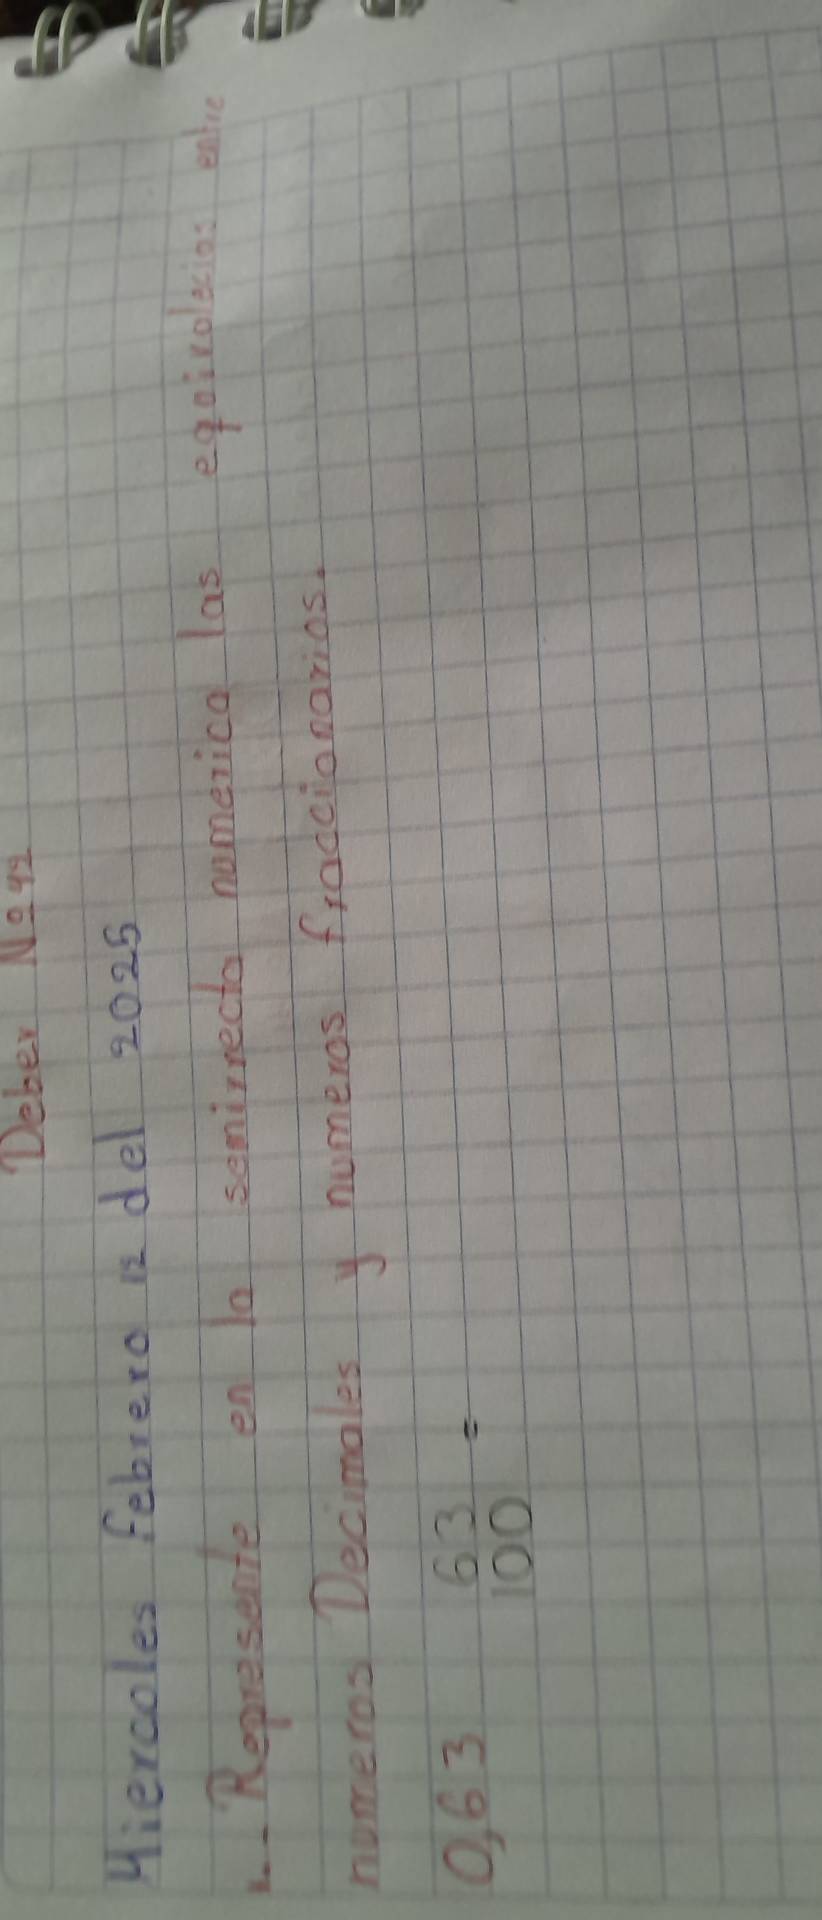 Deber Nº 42
Miercoles febrero 12 del 2025
1.- Represente en la semirrecta numerica las equivalecias entre
numeros Decimales y numeros fraccionarios.
0,63 63 =
100